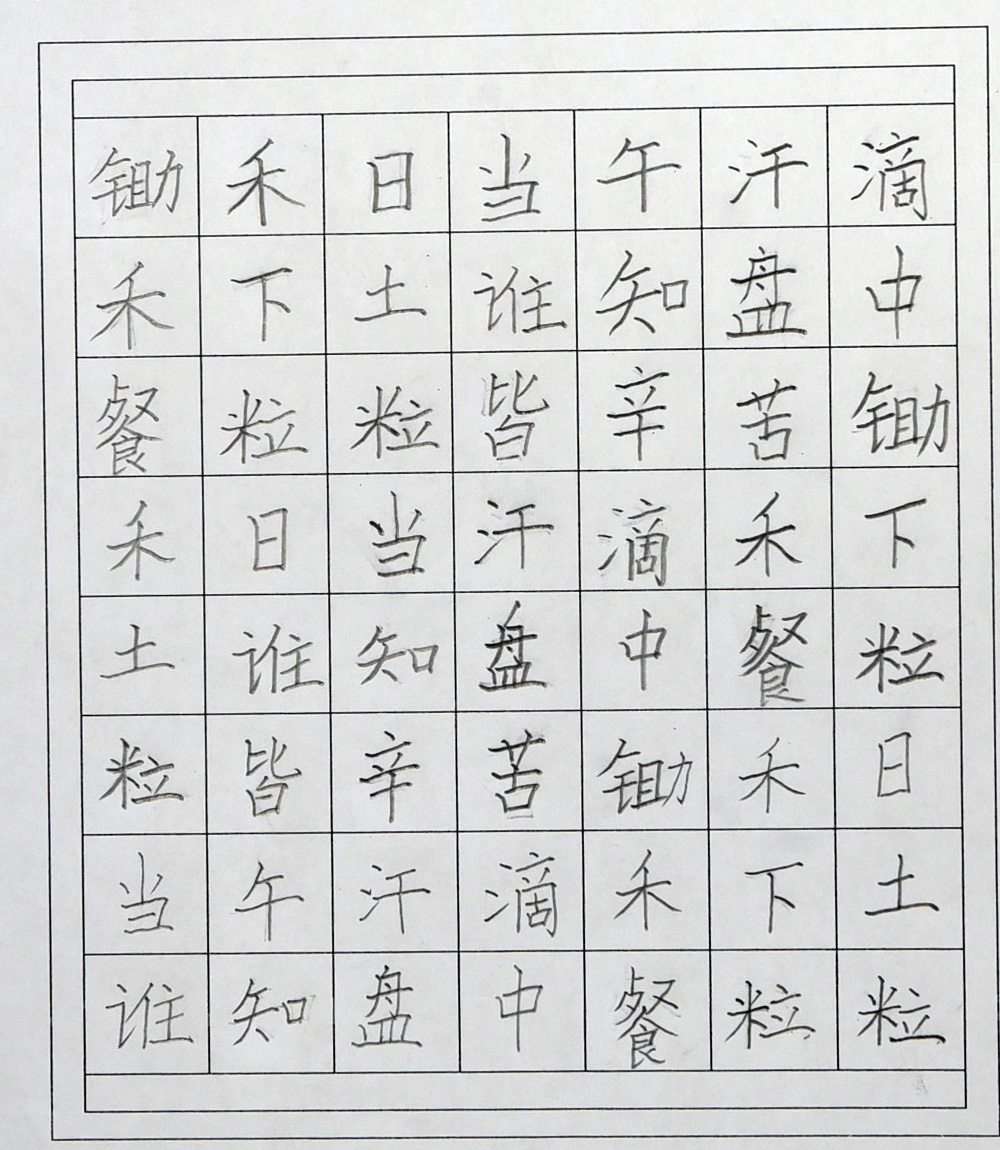 锄禾日当午汗滴
禾下土谁知盘中
餐粒粒皆辛苦锄
禾日当汗滴禾下
土谁知盘中餐粒
粒皆辛苦锄禾日
当午汗滴禾下土
谁知盘中餐粒粒